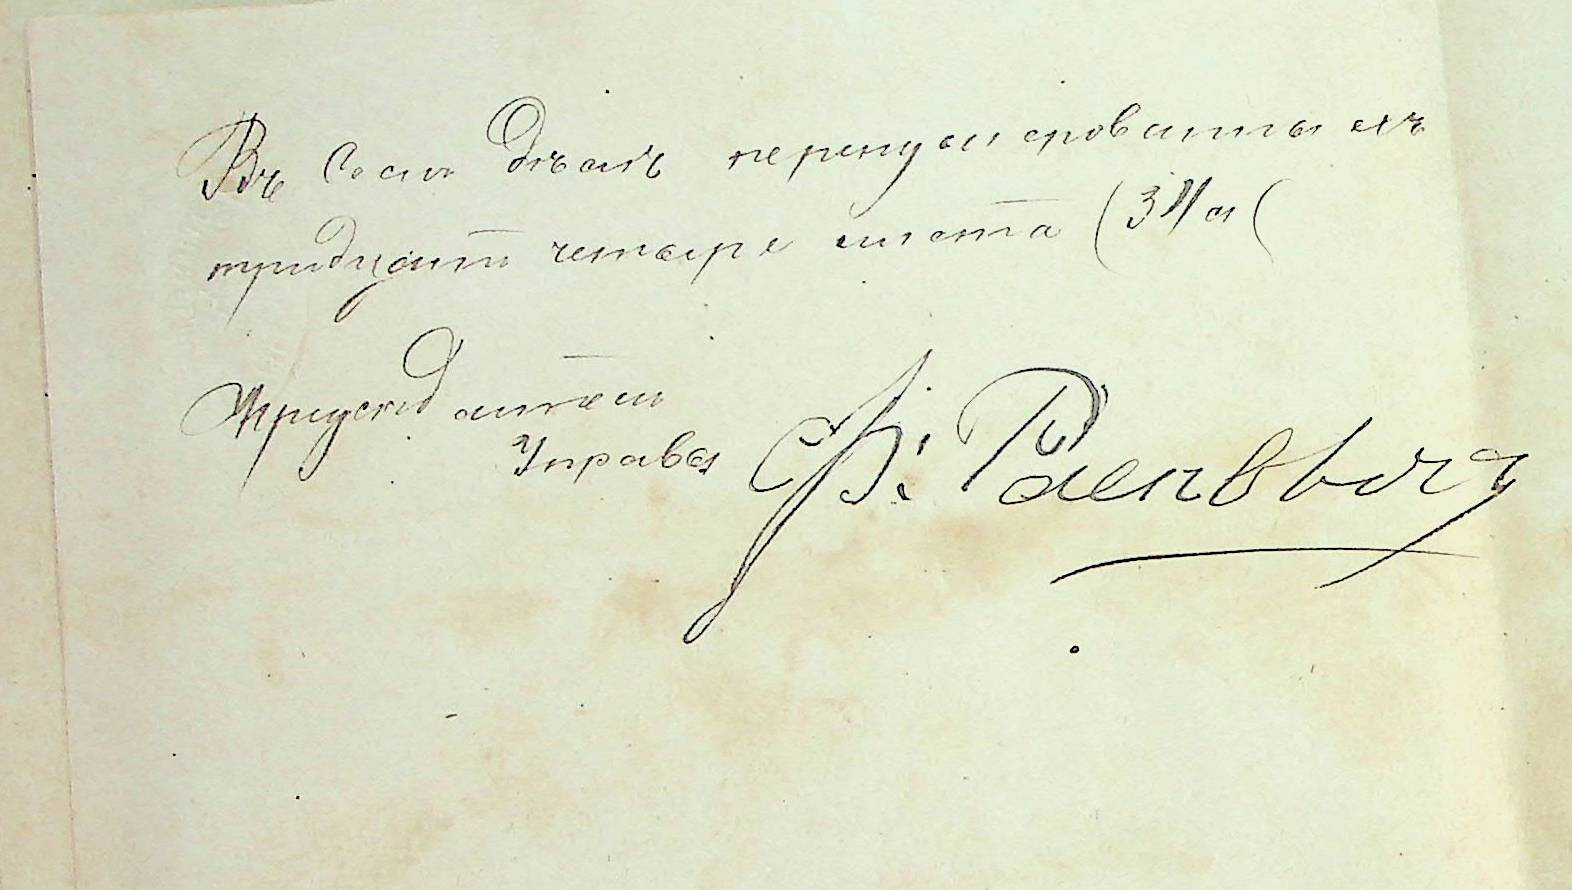 Въ семъ дѣлѣ перенумерованныхъ
тридцать четыре листа (34 л(
Предсѣдатель
Управы